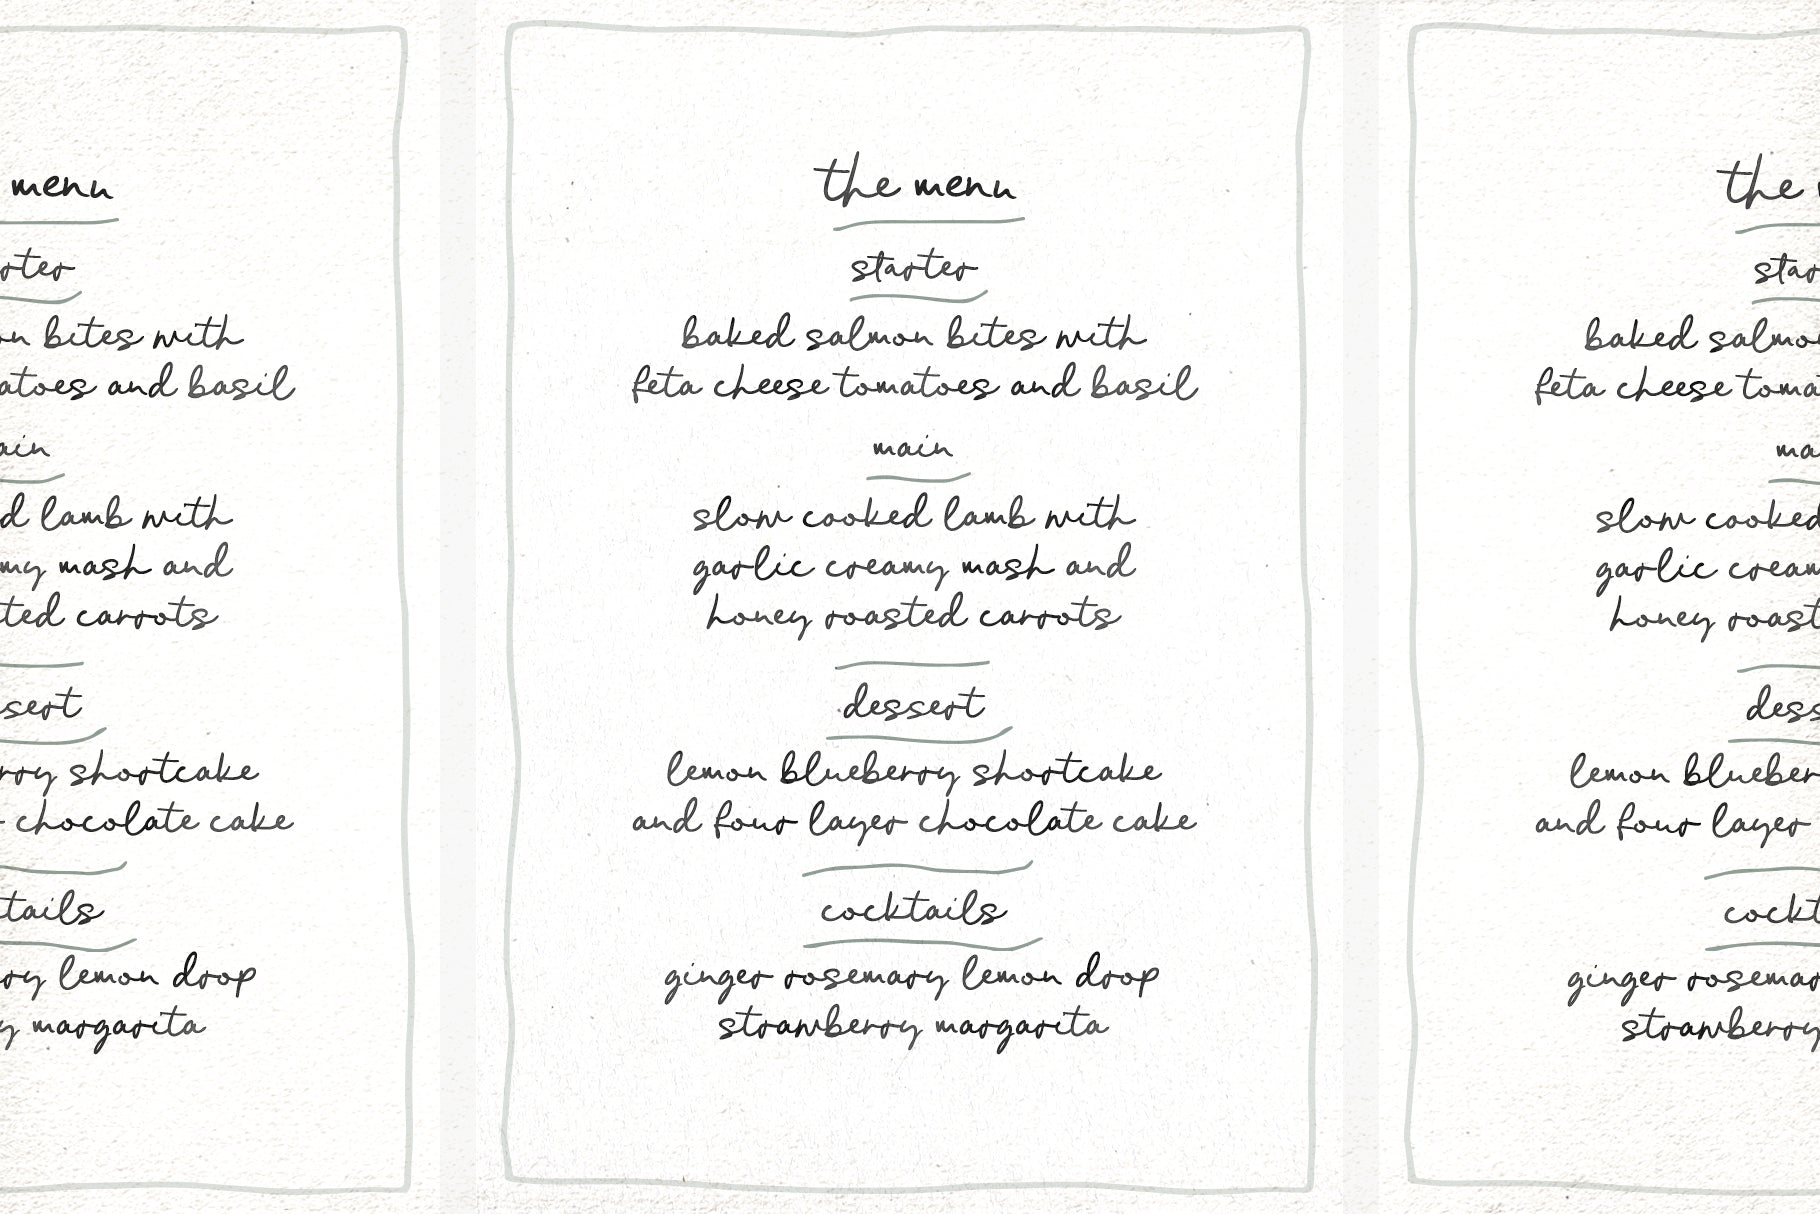 menu
rter
on bites with
atoes and basil
ain
d lamb with
my mash and
ted carrots
sert
rry shortcake
r chocolate cake
tails
ry lemon drop
y margarita
the menu
starter
baked salmon bites with
feta cheese tomatoes and basil
main
slow cooked lamb with
garlic creamy mash and
honey roasted carrots
dessert
lemon blueberry shortcake
and four layer chocolate cake
cocktails
ginger rosemary lemon drop
strawberry margarita
the
star
baked salmo
feta cheese toma
ma
slow cooked
garlic cream
honey roast
dess
lemon blueber
and four layer
cockt
ginger rosemar
strawberry